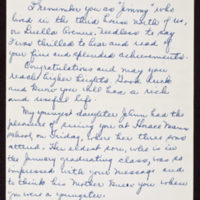 I remember you as "Jimmy" who
lived in the third house North of us,
on Luella Avenue. Needless to say
I was thrilled to hear and read of
your fine and splendid achievements.
Congratulations and may you
reach higher heights. Good luck
and know you will have a rich
and useful life.
My youngest daughter, John had the
pleasure of seeing you at Horace Mann
school on Friday, where her three sons
attend. Her oldest son, who is in
the January graduating class, was so
impressed with your message and
to think his Mother knew you when
you were a youngster.